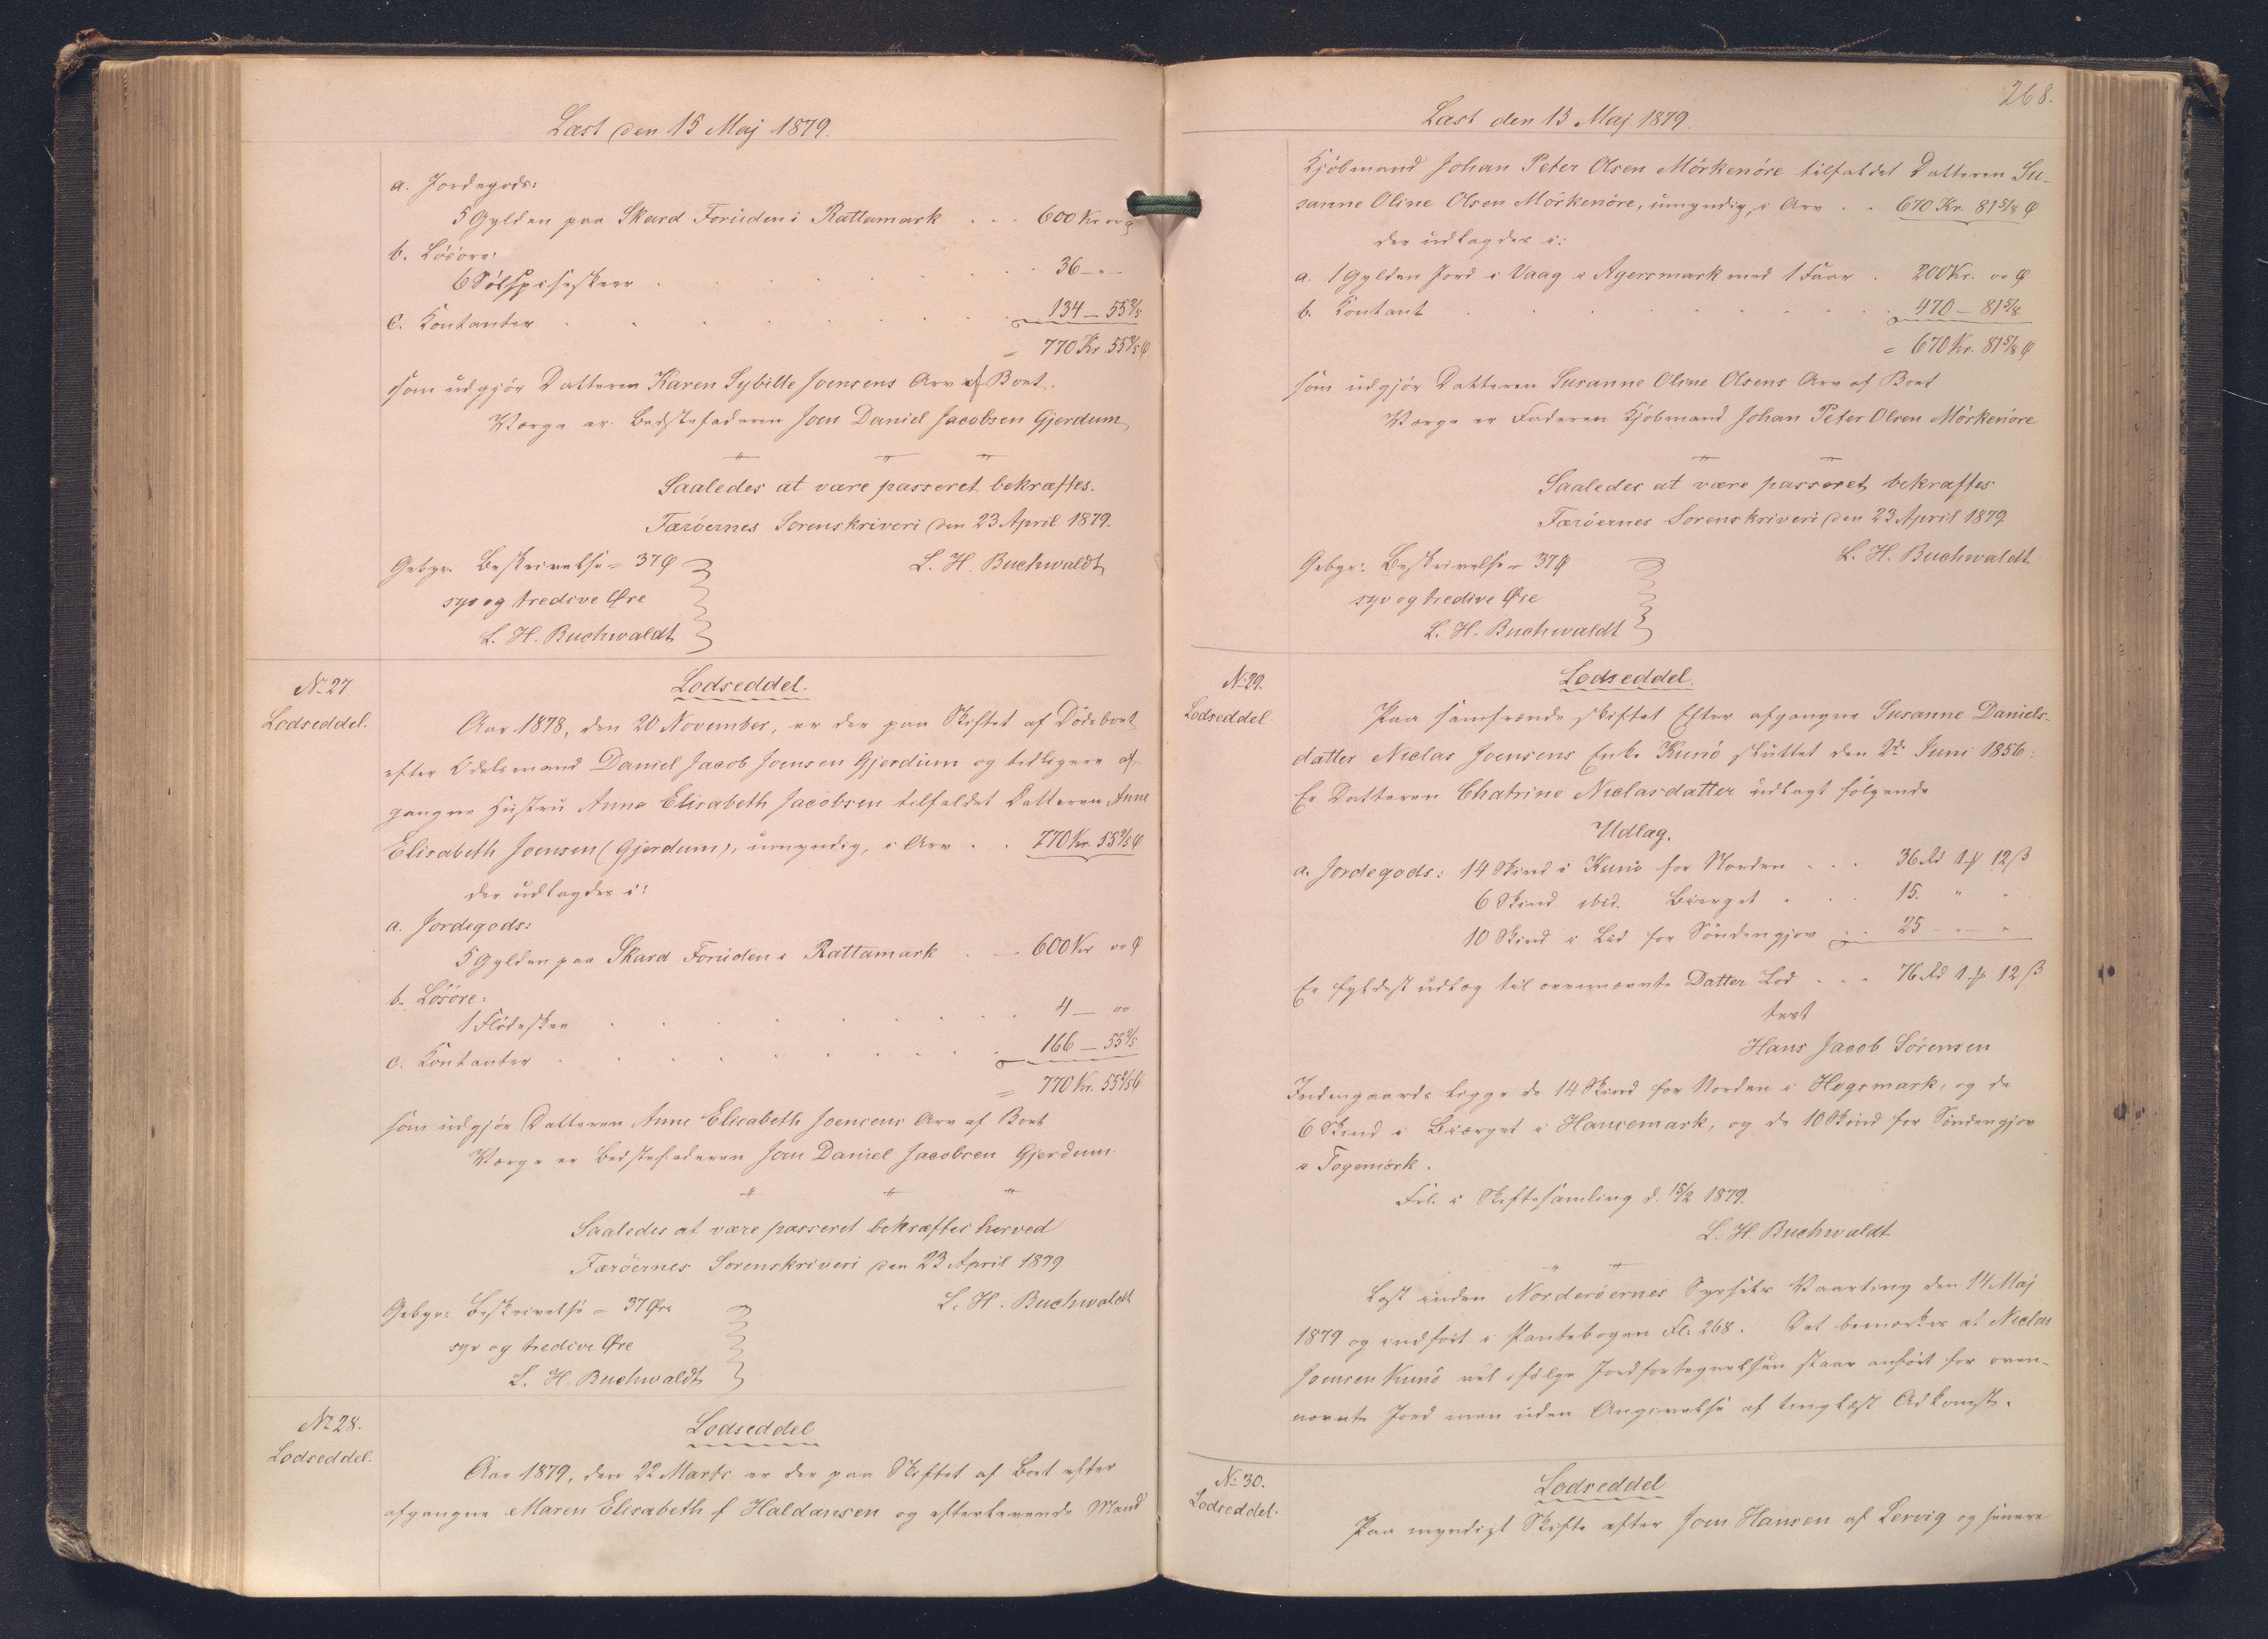 Læst den 15 Maj 1879.
a. Jordegods:
5 Gylden paa Skard Foruden i Rattamark . . . 600 Kr. 00 Ø
b. Løsøre:
6 Sølvspiseskeer . . . 36 – " –
c. Kontanter . . . 134 – 55 2/5
= 770 Kr. 55 2/5 Ø
som udgjør Datteren Karen Sybille Joensens Arv af Boet.
Værge er Bedstefaderen Joen Daniel Jacobsen Gjerdum
Saaledes at være passeret bekræftes.
Færöernes Sorenskriveri den 23 April 1879.
Gebyr. Beskrivelse = 37 Ø
L. H. Buchwaldt
syv og tredive Øre
L. H. Buchwaldt
No 27
Lodseddel.
Lodseddel.
Aar 1878, den 20 November, er der paa Skiftet af Dödsboet
efter Odelsmand Daniel Jacob Joensen Gjerdum og tidligere af-
gangne Hustru Anna Elisabeth Jacobsen tilfaldet Datteren Anne
Elisabeth Joensen (Gjerdum), umyndig, i Arv . . 770 Kr. 55 2/5 Ø
der udlagdes i:
a. Jordegods:
5 Gylden paa Skard Foruden i Rattamark . . . 600 Kr 00 Ø
b. Løsøre:
1 Flödeskee . . . 4 – 00
c. Kontanter . . . 166 – 55 2/5
= 770 Kr. 55 2/5 Ø
som udgjør Datteren Anne Elisabeth Joensens Arv af Boet
Værge er Bedstefaderen Joen Daniel Jacobsen Gjerdum.
Saaledes at være passeret bekræftes herved
Færöernes Sorenskriveri den 23 April 1879
Gebyr: Beskrivelse = 37 Øre
L. H. Buchwaldt
syv og tredive Øre
L. H. Buchwaldt
No 28.
Lodseddel.
Lodseddel
Aar 1879, den 22 Marts er der paa Skiftet af Boet efter
afgangne Maren Elisabeth f Haldansen og efterlevende Mand
268.
Læst den 15 Maj 1879.
Kjöbmand Johan Peter Olsen Mörkenöre tilfaldet Datteren Su-
sanne Oline Olsen Mörkenöre, umyndig, i Arv . . 670 Kr. 81 5/8 Ø
der udlagdes i:
a. 1 Gylden Jord i Vaag i Agersmark med 1 Faar . 200 Kr. 00 Ø
b. Kontant . . . 470 – 81 5/8
= 670 Kr. 81 5/8 Ø
som udgjør Datteren Susanne Oline Olsens Arv af Boet
Værge er Faderen Kjöbmand Johan Peter Olsen Mörkenöre
Saaledes at være passeret bekræftes
Færöernes Sorenskriveri den 23 April 1879
Gebyr: Beskrivelse = 37 Ø
L. H. Buchwaldt
syv og tredive Øre
L. H. Buchwaldt
No 29.
Lodseddel.
Lodseddel.
Paa samfrænde skiftet Efter afgangne Susanne Daniels-
datter Niclas Joensens Enke Kunö sluttet den 2d Juni 1856:
Er Datteren Chatrine Niclasdatter udlagt følgende
Udlag.
a. Jordegods: 14 Skind i Kunö for Norden . . . 36 Rd 1 ꟿ 12 ß
6 Skind ibid. Bierget . . . 15. " "
10 Skind i Lid for Söndengjov . . 25 – " – "
Er fyldest udlæg til ovennævnte Datter Lod . . . 76 Rd 1 ꟿ 12 ß
test
Hans Jacob Sörensen
Indengaards ligge de 14 Skind for Norden i Høgsmark, og de
6 Skind i Bierget i Hansemark, og de 10 Skind for Söndengjov
i Togemörk.
Frl. i Skiftesamling d. 15/2 1879.
L. H. Buchwaldt
Læst inden Norderöernes Syssels Vaarting den 14 Maj
1879 og indført i Pantebogen Fl. 268. Det bemærkes at Niclas
Joensen Kunö vel ifølge Jordfortegnelsen staar anført for oven-
nævnte Jord men uden Angivelse af tinglæst Adkomst.
No 30.
Lodseddel.
Lodseddel
Paa myndigt Skifte efter Joen Hansen af Lervig og senere